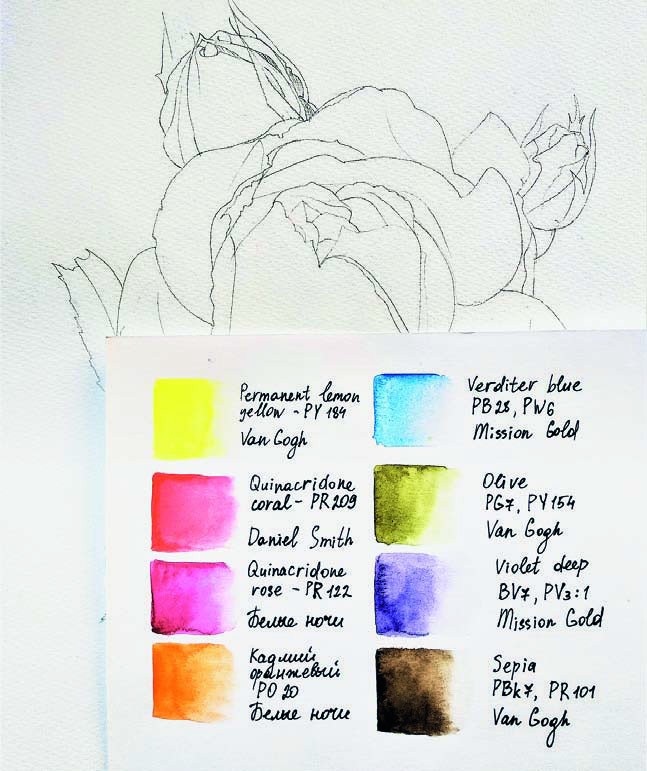 Permanent lemon
yellow - PY 184
Van Gogh
Quinacridone
coral - PR 209
Daniel Smith
Quinacridone
rose - PR 122
Белые ночи
Кадмий
оранжевый
PO 20
Белые ночи
Verditer blue
PB28, PW6
Mission Gold
Olive
PG7, PY154
Van Gogh
Violet deep
BV7, PV3:1
Mission Gold
Sepia
PBk7, PR101
Van Gogh